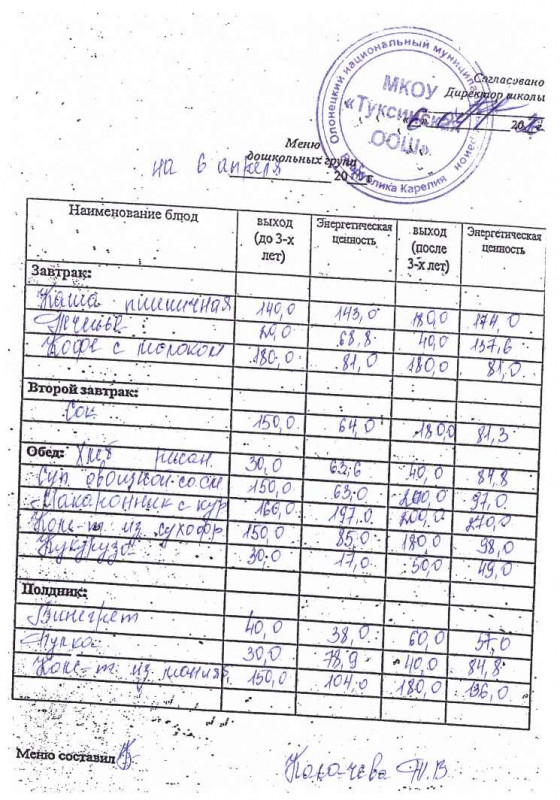 Согласовано
Директор школы
20
Олонецкий национальный муниципальный район
Республика Карелия
МКОУ
«Туксинская
ООШ»
Меню
дошкольных групп
на 6 апреля 20 г
Наименование блюд выход (до 3-х лет) Энергетическая ценность выход (после 3-х лет) Энергетическая ценность
Завтрак:
Каша пшеничная 140,0 143,0 180,0 174,0
Печенье 20,0 68,8 40,0 137,6
Кофе с молоком 180,0 81,0 180,0 81,0
Второй завтрак:
Сок 150,0 64,0 180,0 81,3
Обед: Хлеб ржан. 30,0 63,6 40,0 84,8
Суп овощной со см 150,0 63,0 200,0 97,0
Макаронник с кур 160,0 197,0 200,0 270,0
Комп-т из сухофр 150,0 85,0 180,0 98,0
Кукуруза 30,0 17,0 50,0 49,0
Полдник:
Винегрет 40,0 38,0 60,0 57,0
Булка 30,0 78,9 40,0 84,8
Комп-т из 150,0 104,0 180,0 136,0
Меню составил Т.В.